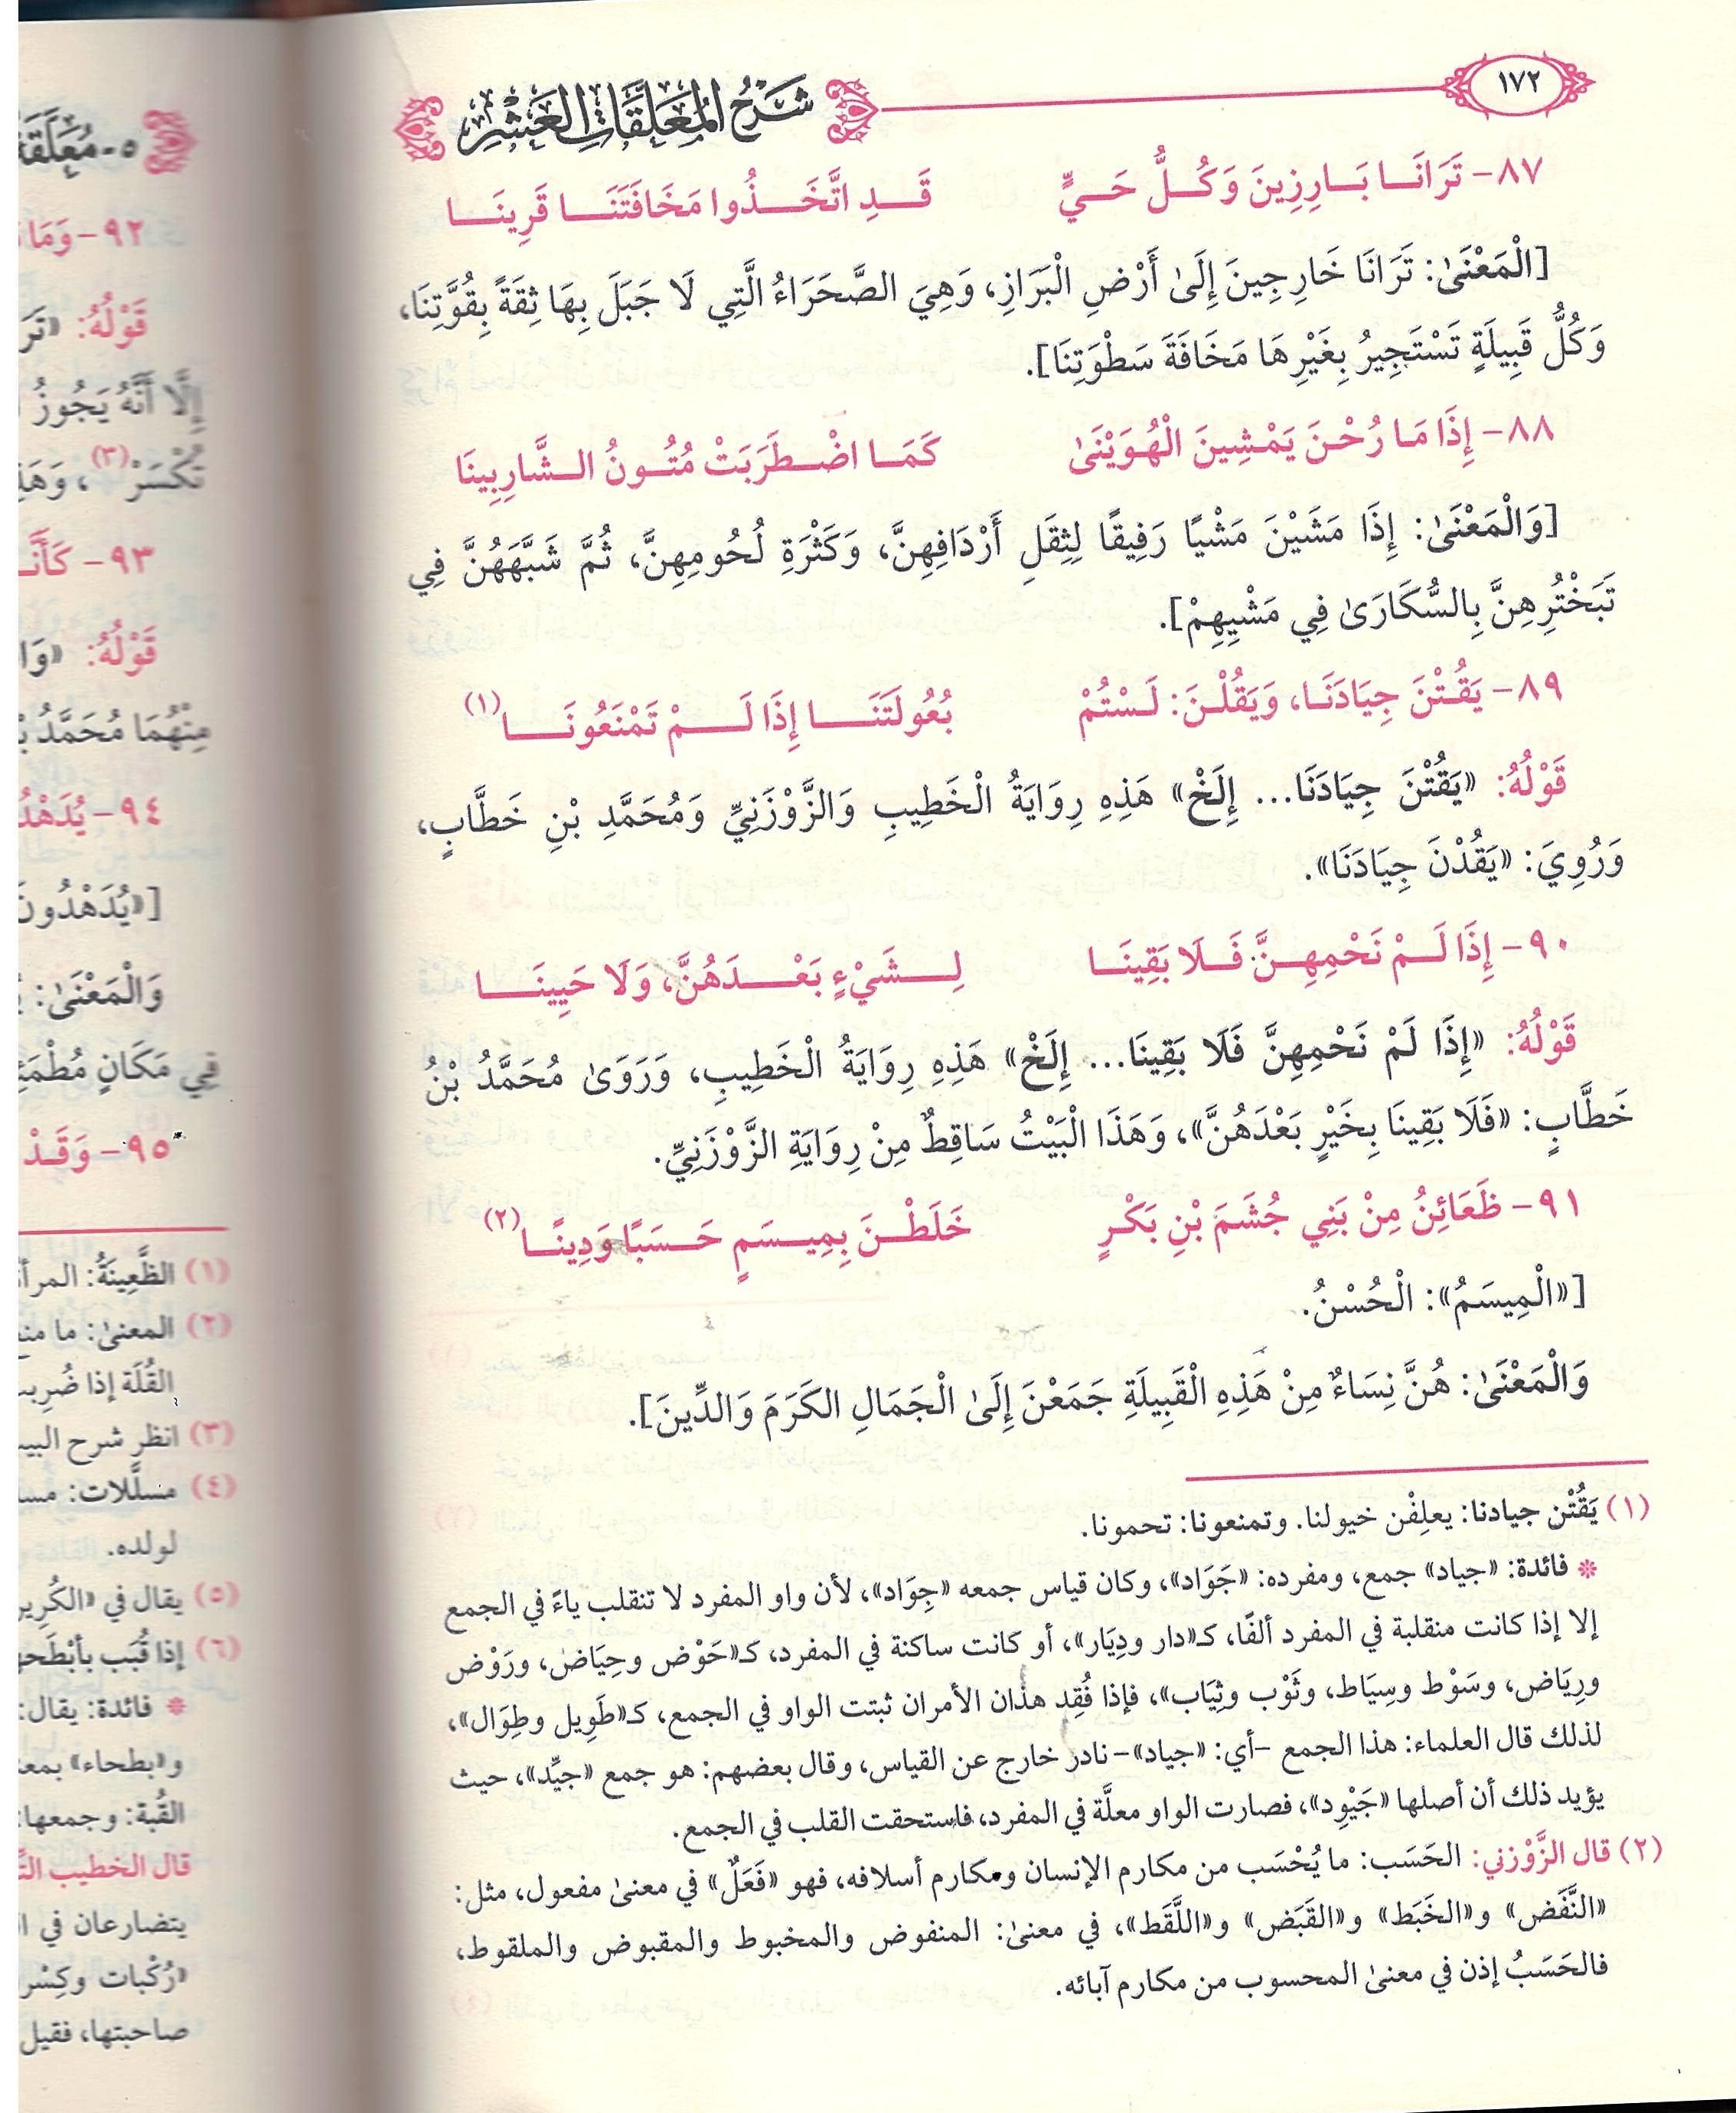 ١٧٢
شَرْحُ المُعَلَّقَاتِ العَشْرِ
٨٧- تَرَانَا بَارِزِينَ وَكُلُّ حَيٍّ قَدِ اتَّخَذُوا مَخَافَتَنَا قَرِينَا
[الْمَعْنَىٰ: تَرَانَا خَارِجِينَ إِلَىٰ أَرْضِ الْبَرَازِ، وَهِيَ الصَّحَرَاءُ الَّتِي لَا جَبَلَ بِهَا ثِقَةً بِقُوَّتِنَا،
وَكُلُّ قَبِيلَةٍ تَسْتَجِيرُ بِغَيْرِهَا مَخَافَةَ سَطْوَتِنَا].
٨٨- إِذَا مَا رُحْنَ يَمْشِينَ الْهُوَيْنَىٰ كَمَا اضْطَرَبَتْ مُتُونُ الشَّارِبِينَا
[وَالْمَعْنَىٰ: إِذَا مَشَيْنَ مَشْيًا رَفِيقًا لِثِقَلِ أَرْدَافِهِنَّ، وَكَثْرَةِ لُحُومِهِنَّ، ثُمَّ شَبَّهَهُنَّ فِي
تَبَخْتُرِهِنَّ بِالسُّكَارَىٰ فِي مَشْيِهِمْ].
٨٩- يَقُتْنَ جِيَادَنَا، وَيَقُلْنَ: لَسْتُمْ بُعُولَتَنَا إِذَا لَمْ تَمْنَعُونَا(١)
قَوْلُهُ: «يَقُتْنَ جِيَادَنَا... إِلَخْ» هَذِهِ رِوَايَةُ الْخَطِيبِ وَالزَّوْزَنِيِّ وَمُحَمَّدِ بْنِ خَطَّابٍ،
وَرُوِيَ: «يَقُدْنَ جِيَادَنَا».
٩٠- إِذَا لَمْ نَحْمِهِنَّ فَلَا بَقِينَا لِشَيْءٍ بَعْدَهُنَّ، وَلَا حَيِينَا
قَوْلُهُ: «إِذَا لَمْ نَحْمِهِنَّ فَلَا بَقِينَا... إِلَخْ» هَذِهِ رِوَايَةُ الْخَطِيبِ، وَرَوَىٰ مُحَمَّدُ بْنُ
خَطَّابٍ: «فَلَا بَقِينَا بِخَيْرٍ بَعْدَهُنَّ»، وَهَذَا الْبَيْتُ سَاقِطٌ مِنْ رِوَايَةِ الزَّوْزَنِيِّ.
٩١- ظَعَائِنُ مِنْ بَنِي جُشَمَ بْنِ بَكْرٍ خَلَطْنَ بِمِيسَمٍ حَسَبًا وَدِينًا(٢)
[«الْمِيسَمُ»: الْحُسْنُ.
وَالْمَعْنَىٰ: هُنَّ نِسَاءٌ مِنْ هَذِهِ الْقَبِيلَةِ جَمَعْنَ إِلَىٰ الْجَمَالِ الكَرَمَ وَالدِّينَ].
(١) يَقُتْن جيادنا: يعلِفْن خيولنا. وتمنعونا: تحمونا.
* فائدة: «جياد» جمع، ومفرده: «جَوَاد»، وكان قياس جمعه «جِوَاد»، لأن واو المفرد لا تنقلب ياءً في الجمع
إلا إذا كانت منقلبة في المفرد ألفًا، كـ«دار ودِيَار»، أو كانت ساكنة في المفرد، كـ«حَوْض وحِيَاض، ورَوْض
ورِيَاض، وسَوْط وسِيَاط، وثَوْب وثِيَاب»، فإذا فُقِد هذان الأمران ثبتت الواو في الجمع، كـ«طَوِيل وطِوَال»،
لذلك قال العلماء: هذا الجمع -أي: «جياد»- نادر خارج عن القياس، وقال بعضهم: هو جمع «جيِّد»، حيث
يؤيد ذلك أن أصلها «جَيْوِد»، فصارت الواو معلَّة في المفرد، فاستحقت القلب في الجمع.
(٢) قال الزَّوْزني: الحَسَب: ما يُحْسَب من مكارم الإنسان ومكارم أسلافه، فهو «فَعَلٌ» في معنىٰ مفعول، مثل:
«النَّفَض» و«الخَبَط» و«القَبَض» و«اللَّقَط»، في معنىٰ: المنفوض والمخبوط والمقبوض والملقوط،
فالحَسَبُ إذن في معنىٰ المحسوب من مكارم آبائه.
٥- مُعَلَّقَة
٩٢- وَمَا
قَوْلُهُ:
إِلَّا أَنَّهُ يَجُوزُ
تُكْسَرْ(٣)،
٩٣-
قَوْلُهُ:
مِنْهُمَا مُحَمَّدُ
٩٤-
[«يُدَهْدُونَ
وَالْمَعْنَىٰ:
فِي مَكَانٍ
٩٥- وَقَدْ
(١) الظَّعِينَةُ:
(٢) المعنىٰ: ما
القُلَة إذا
(٣) انظر شرح
(٤) مسلَّلات:
لولده.
(٥) يقال في
(٦) إذا قُبَب
* فائدة: يقال:
و«بطحاء»
القُبة: وجمعها:
قال الخطيب
يتضارعان في
«رُكْبات
صاحبتها، فقيل